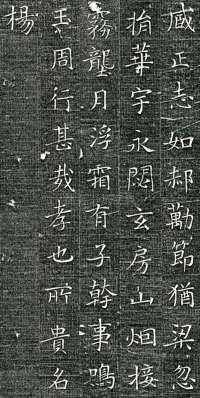 臧正志如郝勸節猶梁忽
捐華宇永閟玄房山烟接
霧壟月浮霜有子幹事鳴
玉周行甚哉孝也所貴名
楊